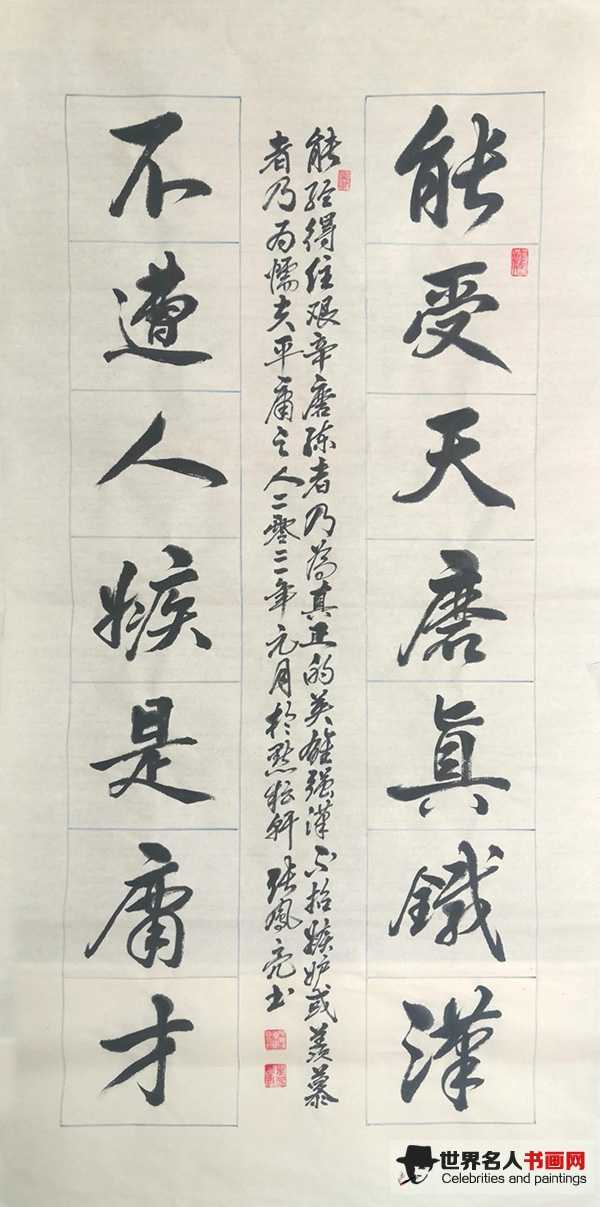 能受天磨真鐵漢
能经得住艰辛磨练者乃为真正的英雄强漢不招嫉妒或羡慕
者乃为懦夫平庸之人二零二二年元月於點粧軒张鳳亮书
不遭人嫉是庸才
世界名人书画网
Celebrities and paintings